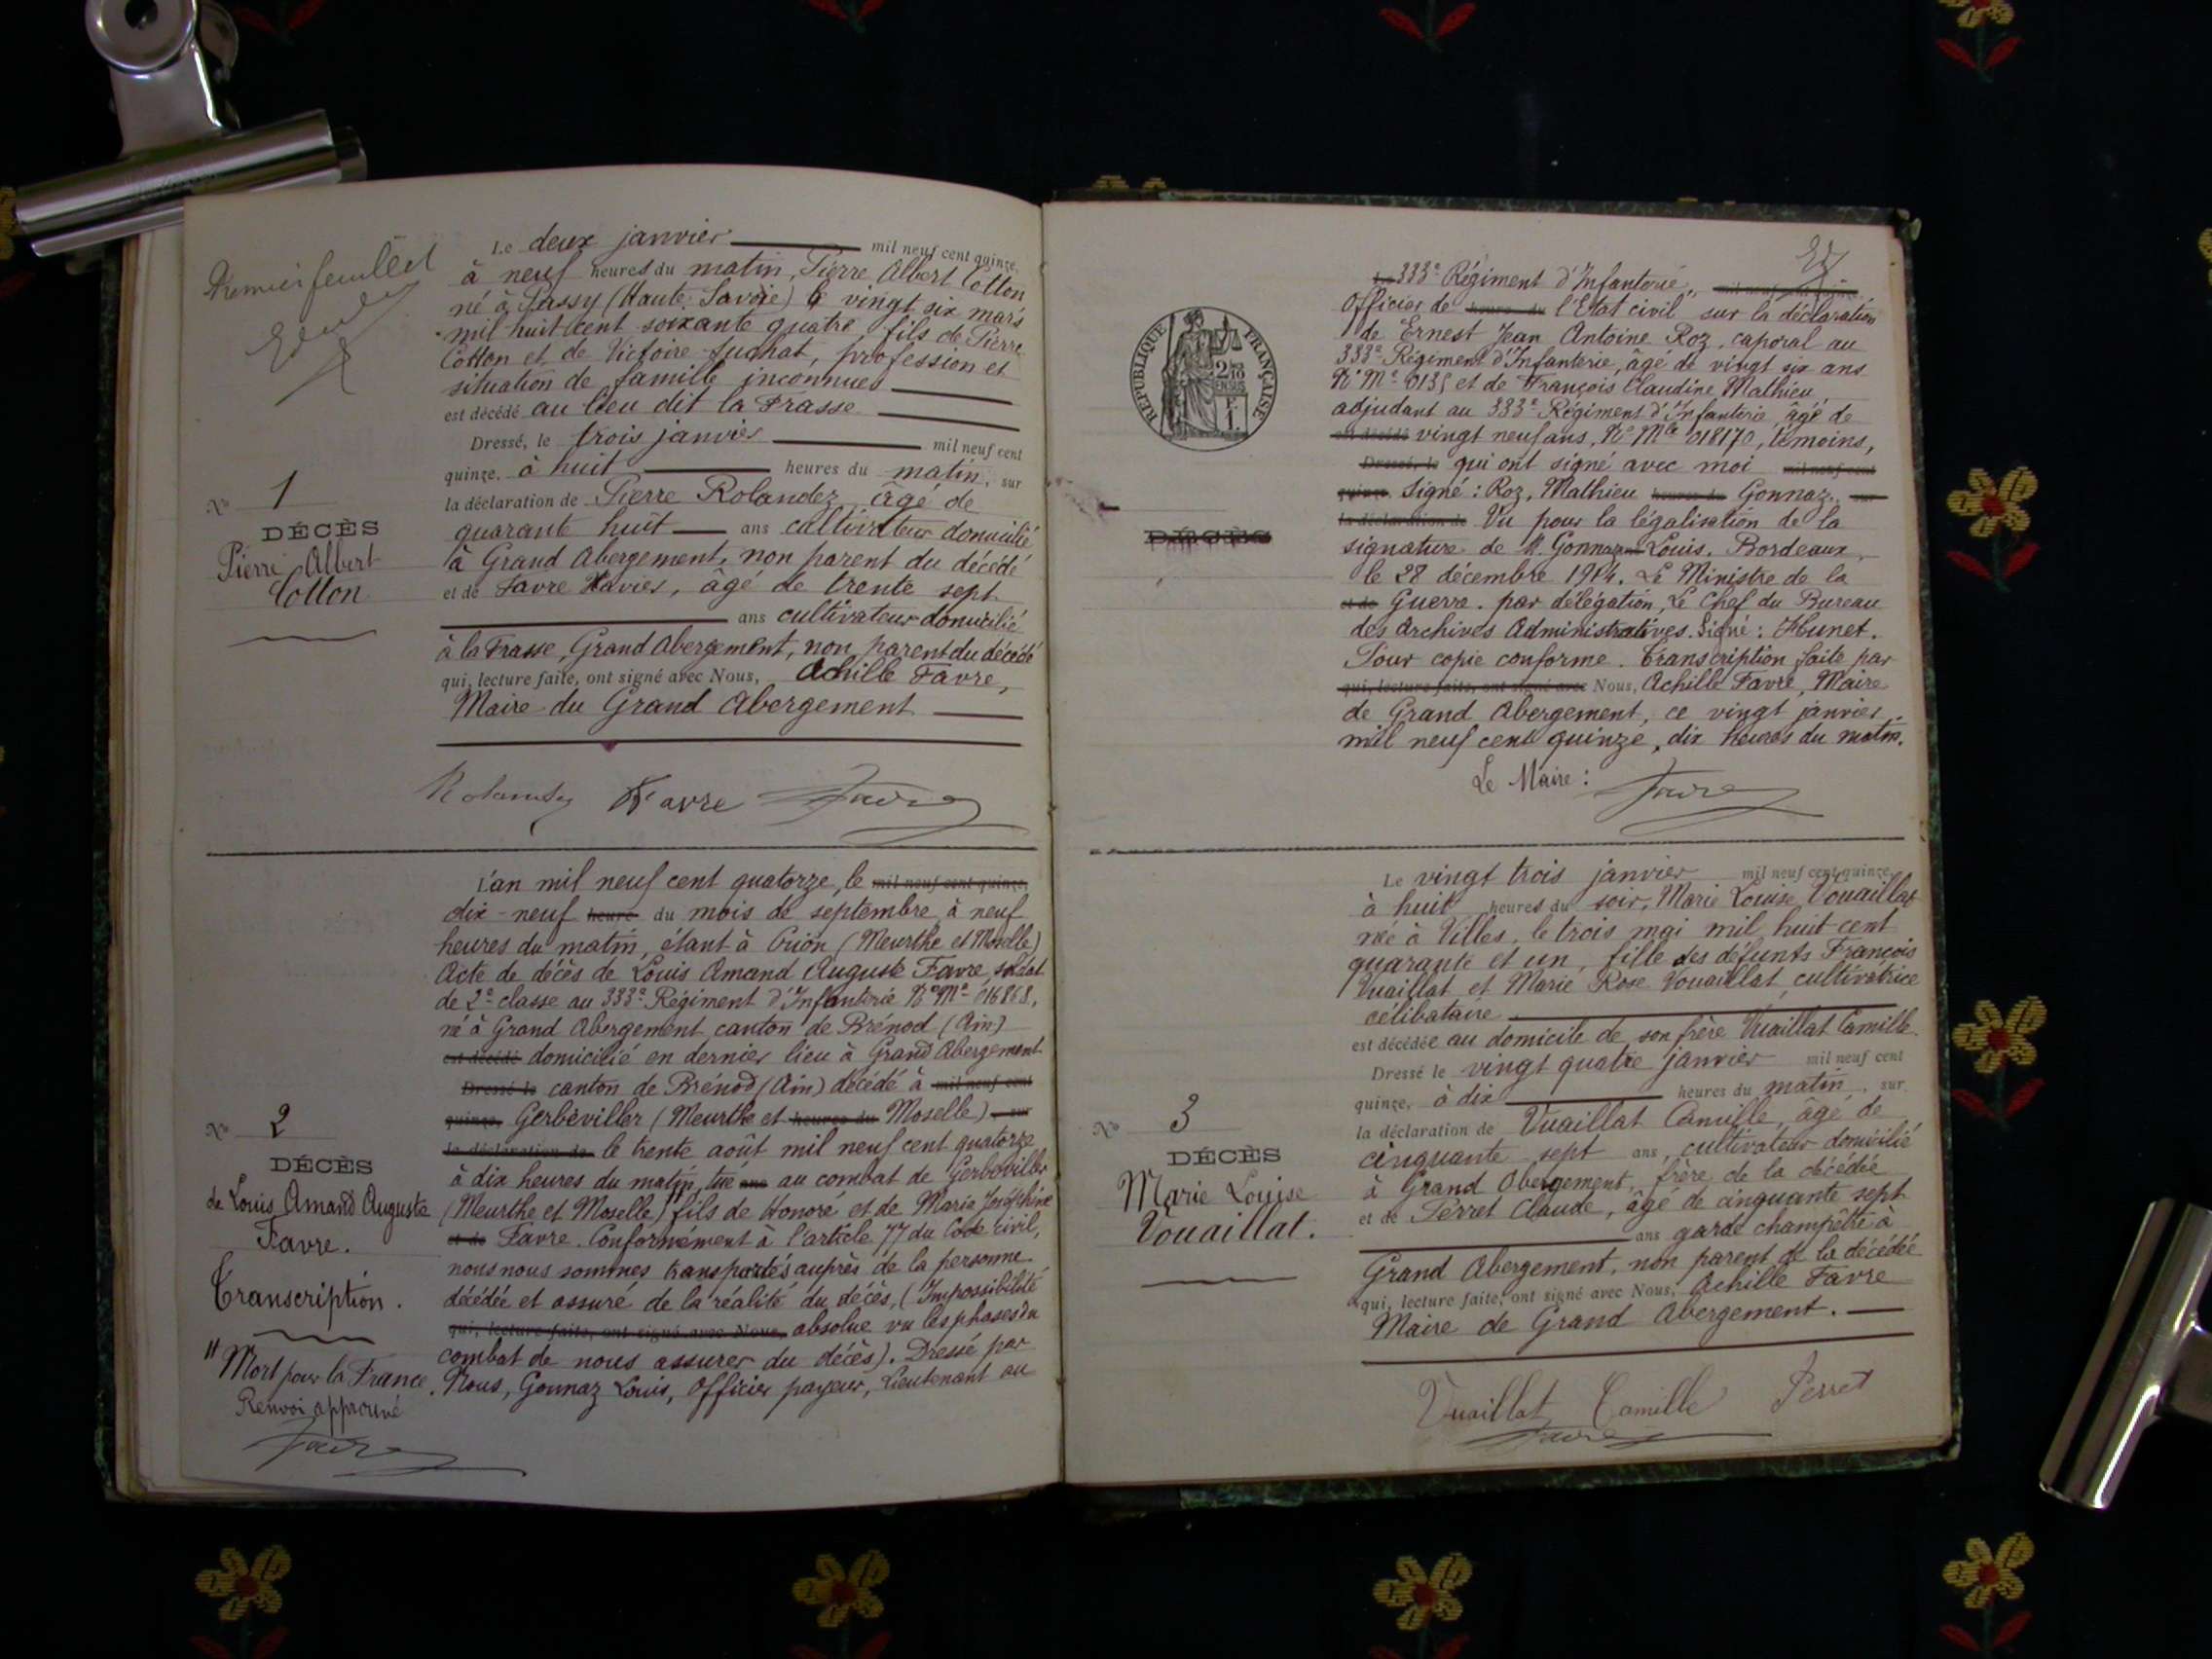 Premier feuillet
Le deux janvier mil neuf cent quinze,
à neuf heures du matin, Pierre Albert Cotton
né à Passy (Haute Savoie) le vingt six mars
mil huit cent soixante quatre, fils de Pierre
Cotton et de Victoire Jughat, profession et
situation de famille inconnues
est décédé au lieu dit la Frasse
Dressé, le trois janvier mil neuf cent
quinze, à huit heures du matin, sur
la déclaration de Pierre Rolandez âgé de
quarante huit ans cultivateur domicilié
à Grand Abergement, non parent du décédé
et de Favre Xavier, âgé de trente sept
ans cultivateur domicilié
à la Frasse, Grand Abergement, non parent du décédé
qui, lecture faite, ont signé avec Nous, Achille Favre,
Maire du Grand Abergement
N° 1
DÉCÈS
Pierre Albert
Cotton
Rolandez Favre Favre
L'an mil neuf cent quatorze, le mil neuf cent quinze,
dix-neuf heure du mois de septembre à neuf
heures du matin, étant à Crion (Meurthe et Moselle)
Acte de décès de Louis Amand Auguste Favre, soldat
de 2e classe au 333e Régiment d'Infanterie N° Me 016868,
né à Grand Abergement canton de Brénod (Ain)
est décédé domicilié en dernier lieu à Grand Abergement
Dressé le canton de Brénod (Ain) décédé à mil neuf cent
quinze, Gerbéviller (Meurthe et heures du Moselle) sur
la déclaration de le trente août mil neuf cent quatorze
à dix heures du matin, tué ans au combat de Gerbéviller
(Meurthe et Moselle)" fils de Honoré et de Marie Joséphine
et de Favre. Conformément à l'article 77 du Code civil,
nous nous sommes transportés auprès de la personne
décédée et assuré de la réalité du décès, (Impossibilité
qui, lecture faite, ont signé avec Nous, absolue vu les phases du
combat de nous assurer du décès). Dressé par
Nous, Gonnaz Louis, Officier payeur, Lieutenant au
N° 2
DÉCÈS
de Louis Amand Auguste
Favre.
Transcription.
" Mort pour la France.
Renvoi approuvé
Favre
RÉPUBLIQUE FRANÇAISE
DÉCÈS
Le 333e Régiment d'Infanterie, mil neuf cent quinze,
Officier de heures du l'Etat civil sur la déclaration
de Ernest Jean Antoine Roz, caporal au
333e Régiment d'Infanterie, âgé de vingt six ans
N° Me 0135 et de François Claudine Mathieu
adjudant au 333e Régiment d'Infanterie, âgé de
est décédé vingt neuf ans, N° Mle 018170, témoins,
Dressé, le qui ont signé avec moi mil neuf cent
quinze, Signé: Roz, Mathieu heures du Gonnaz. sur
la déclaration de Vu pour la légalisation de la
signature de M. Gonnaz ans Louis. Bordeaux,
le 28 décembre 1914. Le Ministre de la
et de Guerre. par délégation, Le Chef du Bureau
des Archives Administratives. Signé: Hunet.
Pour copie conforme. Transcription faite par
qui, lecture faite, ont signé avec Nous, Achille Favre, Maire
de Grand Abergement, ce vingt janvier
mil neuf cent quinze, dix heures du matin.
Le Maire: Favre
Le vingt trois janvier mil neuf cent quinze,
à huit heures du soir, Marie Louise Vouaillat
née à Villes, le trois mai mil huit cent
quarante et un, fille des défunts François
Vuaillat et Marie Rose Vouaillat, cultivatrice
célibataire
est décédée au domicile de son frère Vuaillat Camille.
Dressé le vingt quatre janvier mil neuf cent
quinze, à dix heures du matin, sur
la déclaration de Vuaillat Camille, âgé de
cinquante sept ans, cultivateur domicilié
à Grand Abergement, frère de la décédée
et de Perret Claude, âgé de cinquante sept
ans garde champêtre à
Grand Abergement, non parent de la décédée
qui, lecture faite, ont signé avec Nous, Achille Favre
Maire de Grand Abergement.
N° 3
DÉCÈS
Marie Louise
Vouaillat.
Vuaillat Camille Perret
Favre